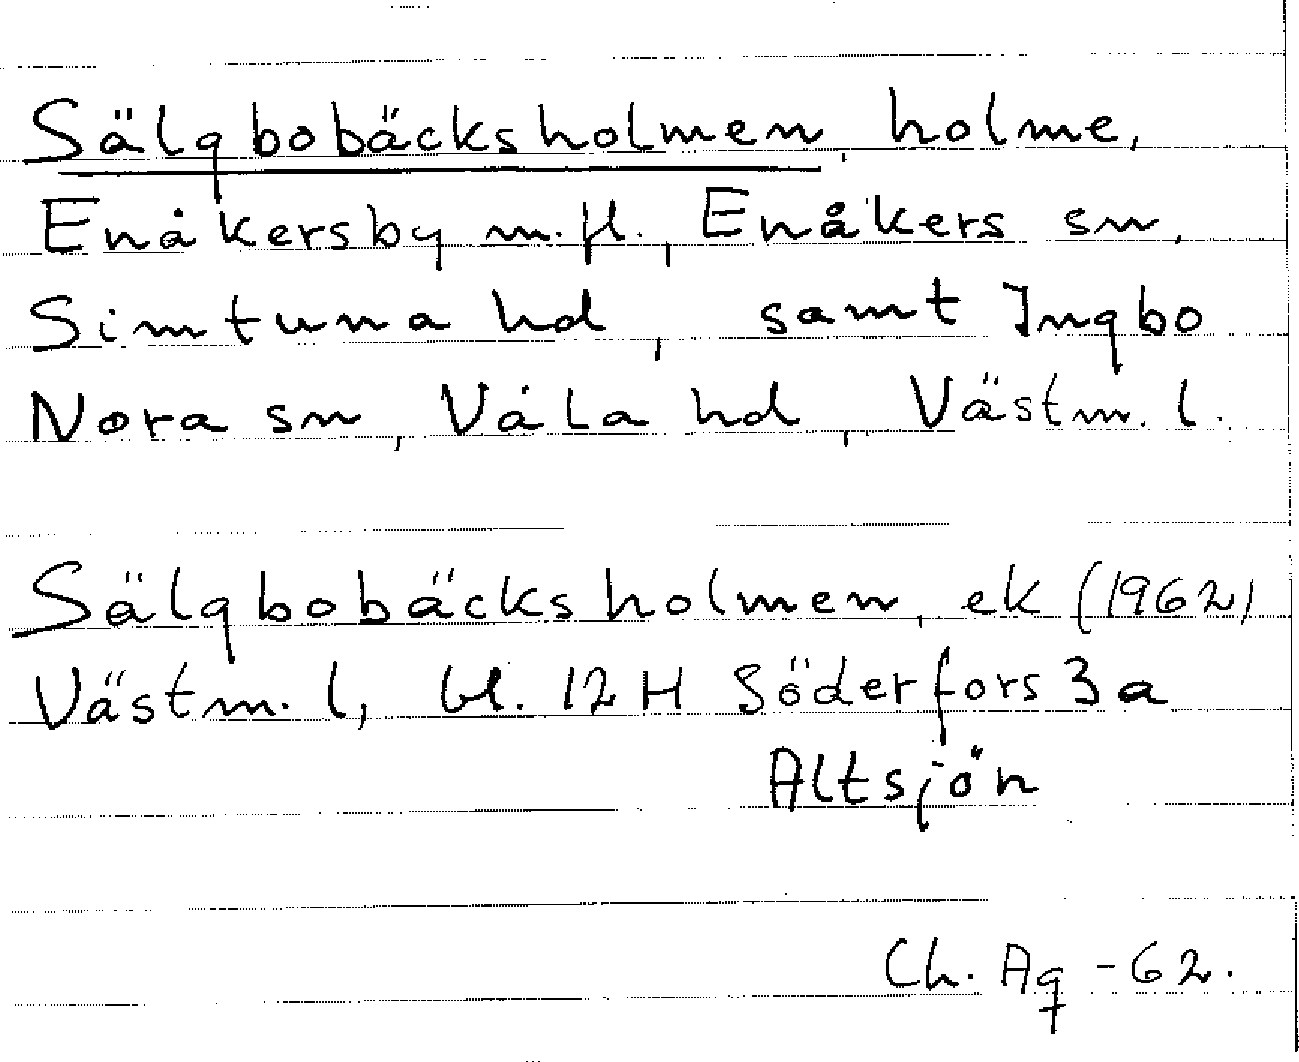 Sälgbobäcksholmen, holme,
Enåkersby m.fl., Enåkers sn,
Simtuna hd, samt Ingbo
Nora sn, Våla hd, Västm. l.
Sälgbobäcksholmen, ek (1962)
Västm. l, bl. 12 H Söderfors 3 a
Altsjön
Ch. Ag -62.